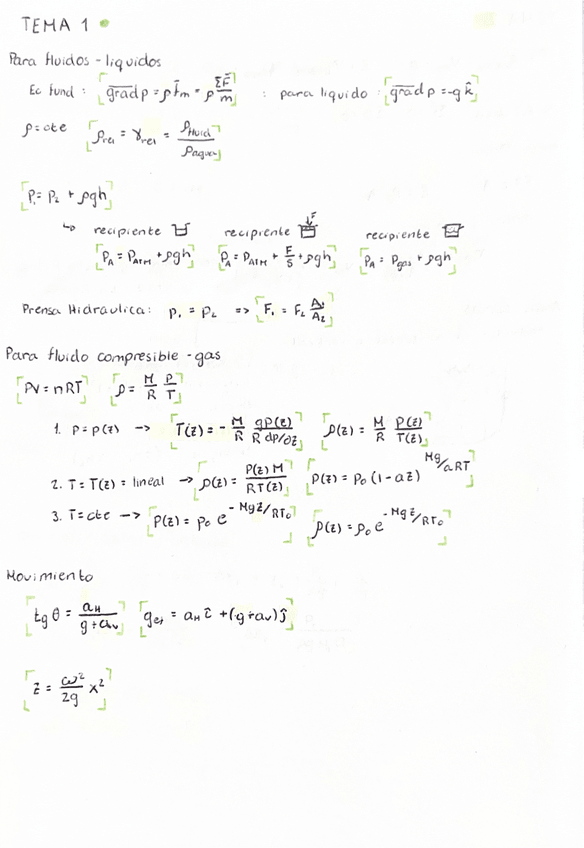 TEMA 1
Para fluidos - liquidos
Ec fund : grad p = ρ f̄m = ρ ΣF̄/m : para liquido : grad p = -g k̂
ρ = cte ρrel = γrel = ρfluid/ρagua
P₁ = P₂ + ρgh
↳ recipiente recipiente F recipiente
PA = PATM + ρgh PA = PATM + F/S + ρgh PA = Pgas + ρgh
Prensa Hidraulica: P₁ = P₂ => F₁ = F₂ A₁/A₂
Para fluido compresible - gas
PV = nRT ρ = M/R P/T
1. P = P(z) → T(z) = - M/R gP(z)/R dp/dz ρ(z) = M/R P(z)/T(z)
2. T = T(z) = lineal → ρ(z) = P(z) M/RT(z) P(z) = P₀ (1 - az)^Mg/aRT
3. T = cte → P(z) = P₀ e^-Mgz/RT₀ ρ(z) = ρ₀ e^-Mgz/RT₀
Movimiento
tg θ = aH/g + av gef = aH î + (g + av) ĵ
z = ω²/2g x²